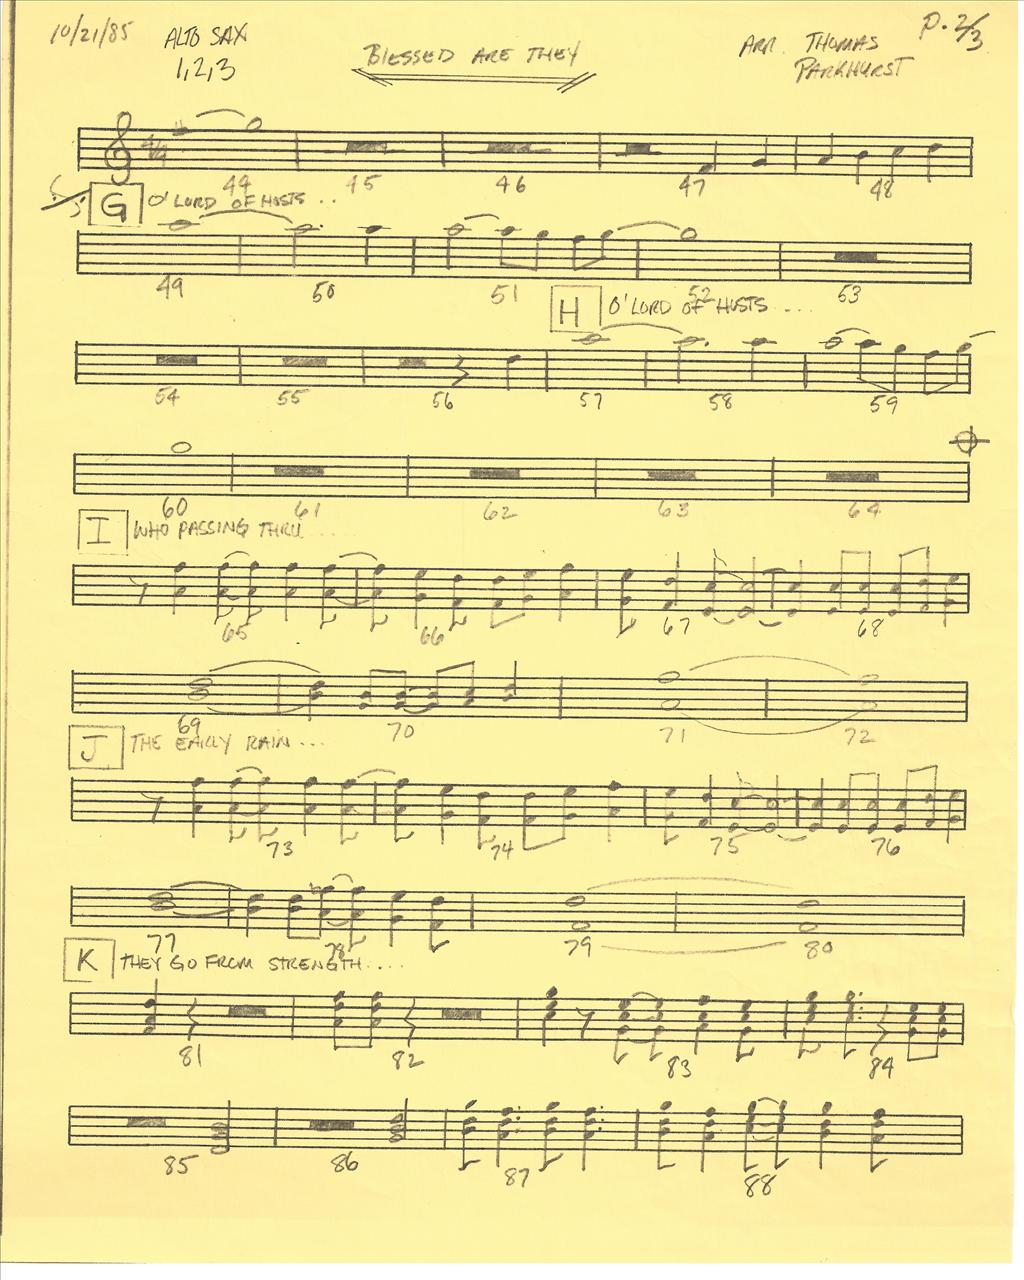 10/21/85 ALTO SAX BLESSED ARE THEY ARR. THOMAS P. 2/3
1,2,3 PARKHURST
4/4
44 45 46 47 48
G O'LORD OF HOSTS ..
49 50 51 52 53
H O'LORD OF HOSTS ....
54 55 56 57 58 59
60 61 62 63 64
I WHO PASSING THRU ....
65 66 67 68
69 70 71 72
J THE EARLY RAIN ...
73 74 75 76
77 78 79 80
K THEY GO FROM STRENGTH ....
81 82 83 84
85 86 87 88